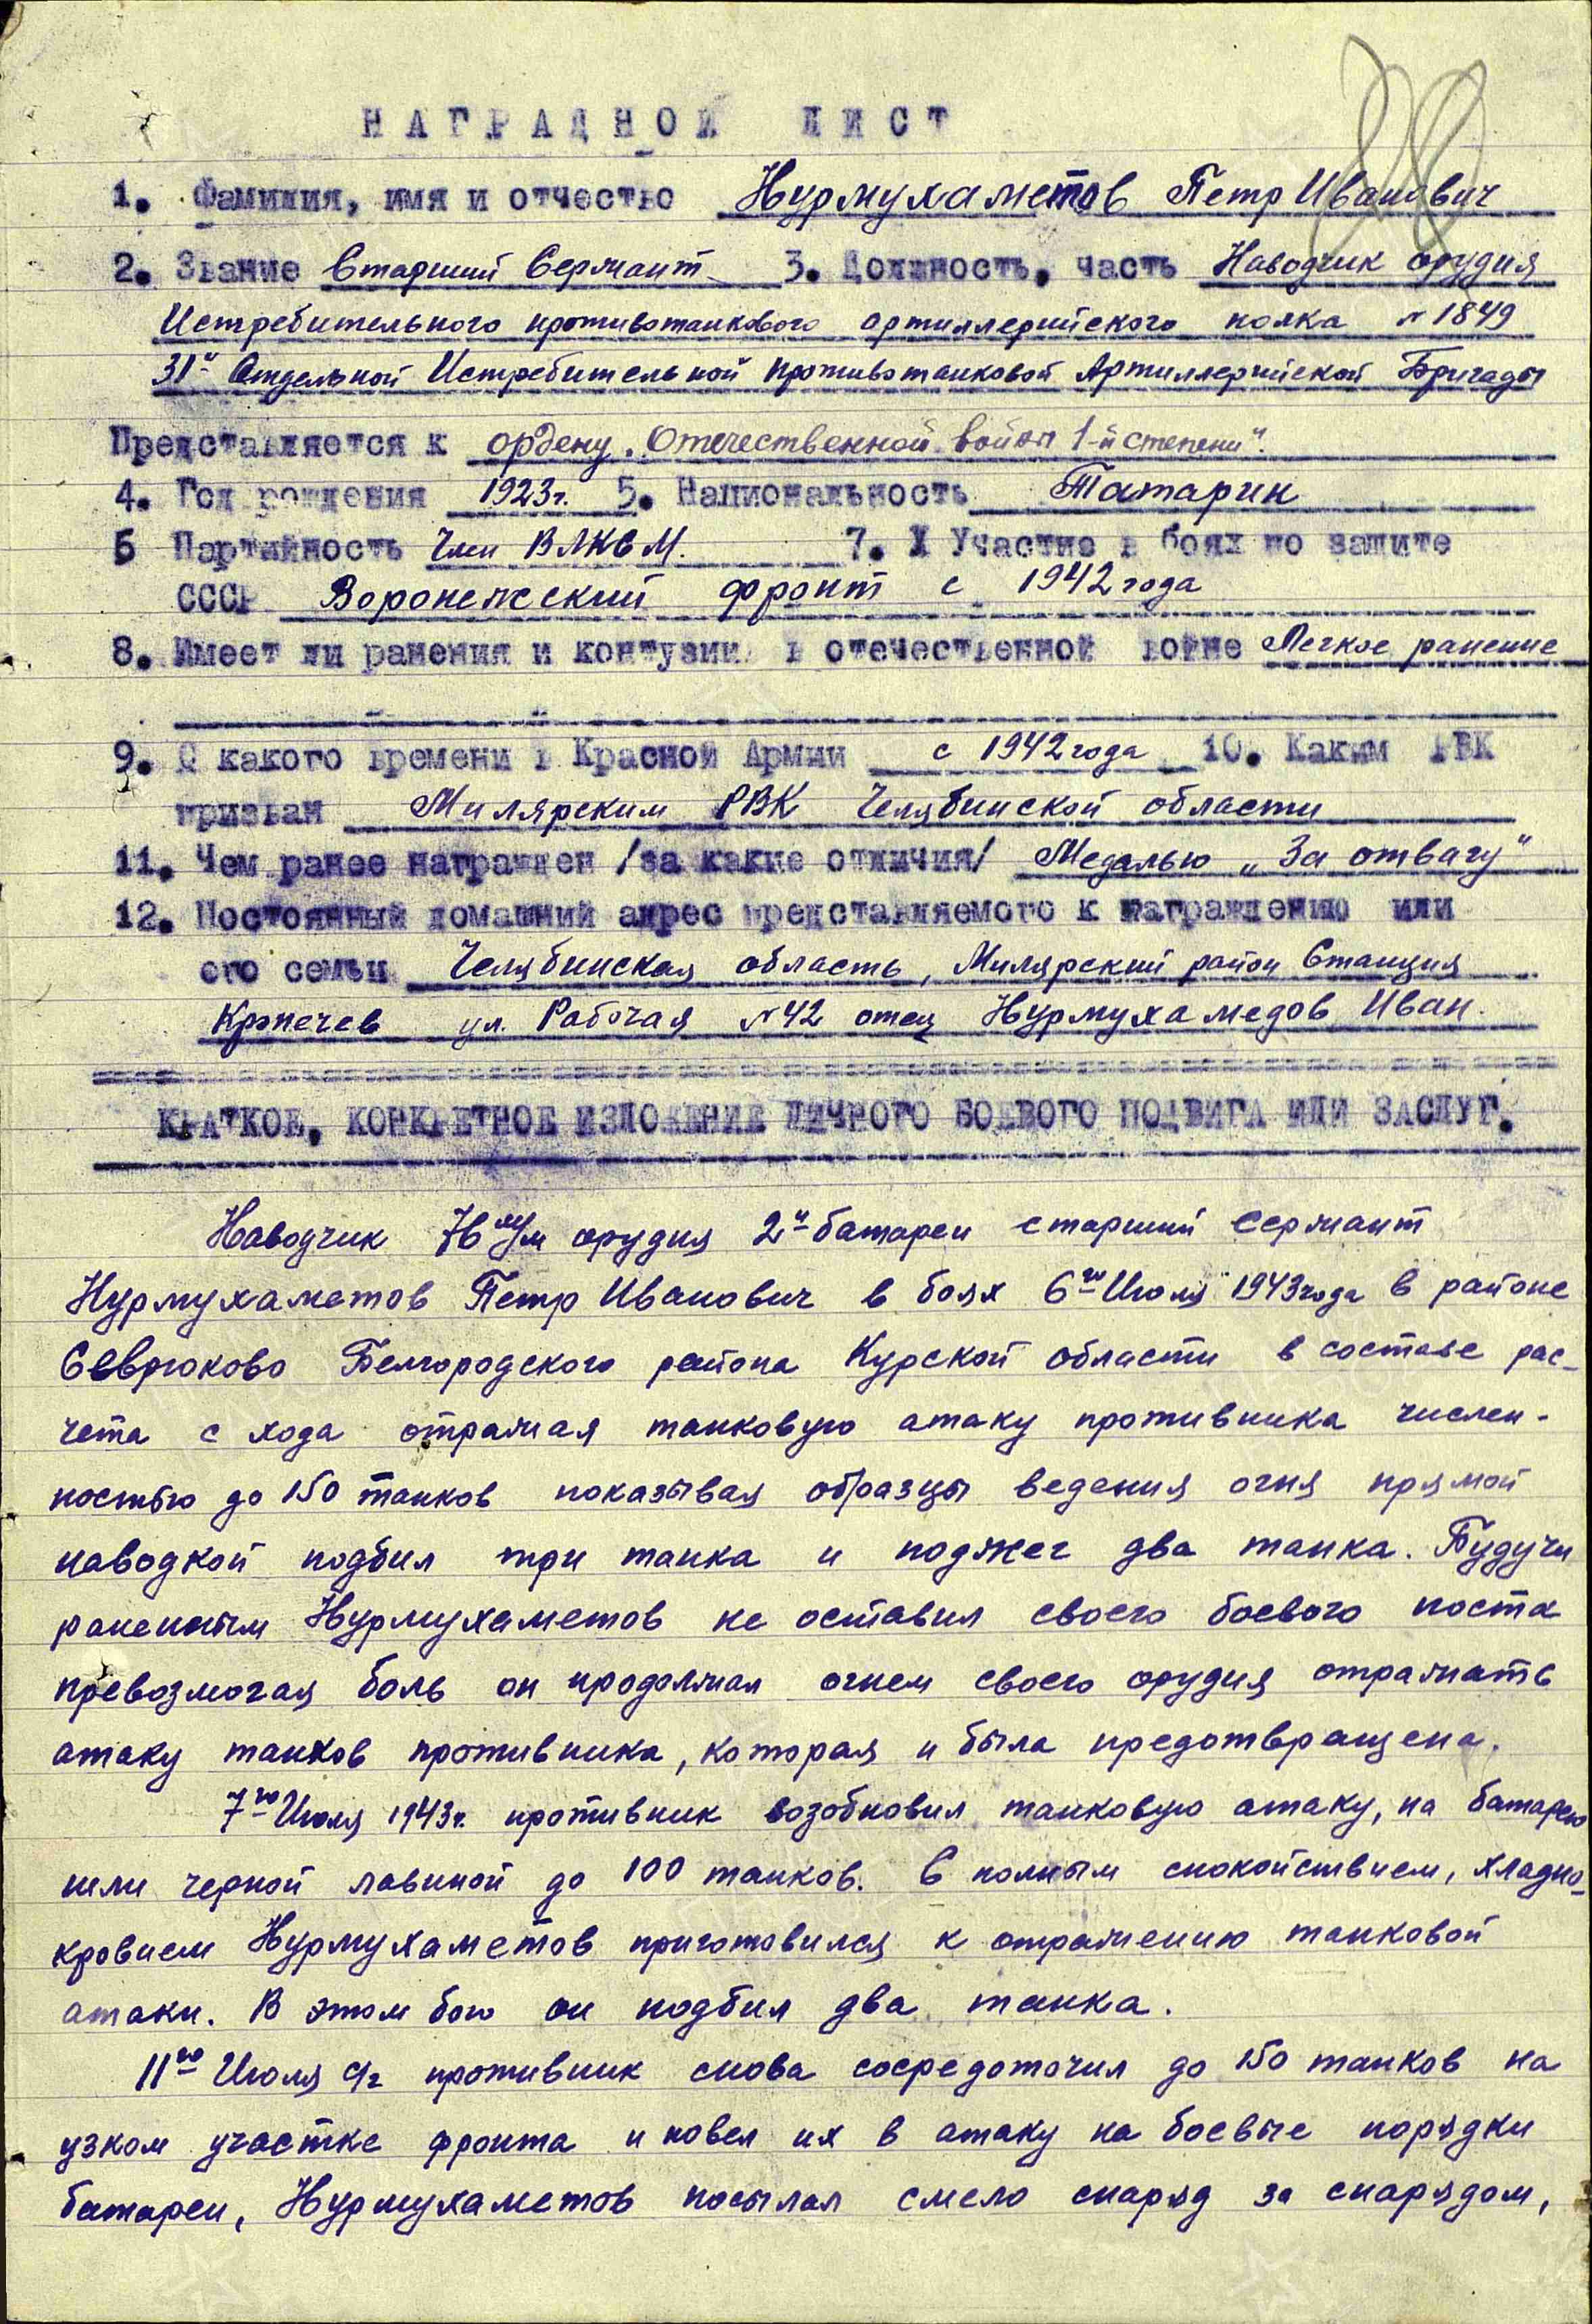 НАГРАДНОЙ ЛИСТ
1. Фамилия, имя и отчество Нурмухаметов Петр Иванович
2. Звание Старший Сержант 3. Должность, часть Наводчик орудия
Истребительного противотанкового артиллерийского полка №1849
31й Отдельной Истребительной противотанковой Артиллерийской Бригады
Представляется к ордену „Отечественной войны 1-й степени“.
4. Год рождения 1923г. 5. Национальность Татарин
5 Партийность Член ВЛКСМ. 7. Участие в боях по защите
СССР Воронежский фронт с 1942 года
8. Имеет ли ранения и контузии в отечественной войне Легкое ранение
9. С какого времени в Красной Армии с 1942 года 10. Каким РВК
призван Милярским РВК Челябинской области
11. Чем ранее награжден /за какие отличия/ Медалью „За отвагу“
12. Постоянный домашний адрес представляемого к награждению или
его семьи Челябинская область, Милярский район Станция
ул. Рабочая №42 отец Нурмухамедов Иван.
КРАТКОЕ, КОНКРЕТНОЕ ИЗЛОЖЕНИЕ ЛИЧНОГО БОЕВОГО ПОДВИГА ИЛИ ЗАСЛУГ.
Наводчик 76 м/м орудия 2й батареи старший сержант
Нурмухаметов Петр Иванович в боях 6го Июля 1943 года в районе
Севрюково Белгородского района Курской области в составе рас-
чета с хода отражая танковую атаку противника числен-
ностью до 150 танков показывая образцы ведения огня прямой
наводкой подбил три танка и поджег два танка. Будучи
раненным Нурмухаметов не оставил своего боевого поста
превозмогая боль он продолжал огнем своего орудия отражать
атаку танков противника, которая и была предотвращена.
7го Июля 1943г. противник возобновил танковую атаку, на батарею
шли черной лавиной до 100 танков. С полным спокойствием, хладно-
кровием Нурмухаметов приготовился к отражению танковой
атаки. В этом бою он подбил два танка.
11го Июля с/г противник снова сосредоточил до 150 танков на
узком участке фронта и повел их в атаку на боевые порядки
батареи, Нурмухаметов посылал смело снаряд за снарядом,